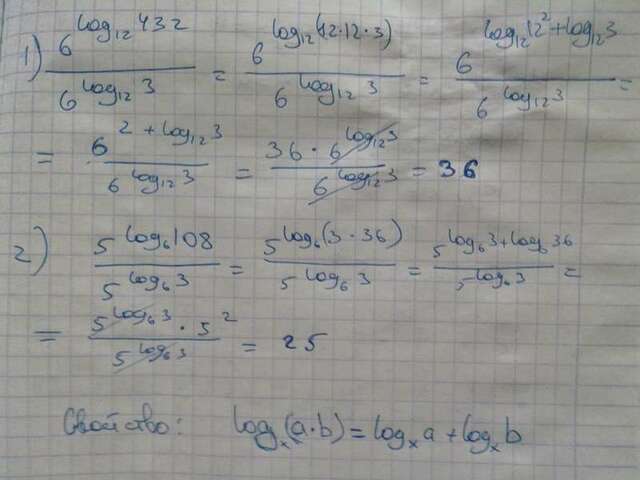 1) 6^(log₁₂432) / 6^(log₁₂3) = 6^(log₁₂(12·12·3)) / 6^(log₁₂3) = 6^(log₁₂12²+log₁₂3) / 6^(log₁₂3) =
= 6^(2+log₁₂3) / 6^(log₁₂3) = 36·6^(log₁₂3) / 6^(log₁₂3) = 36
2) 5^(log₆108) / 5^(log₆3) = 5^(log₆(3·36)) / 5^(log₆3) = 5^(log₆3+log₆36) / 5^(log₆3) =
= 5^(log₆3)·5² / 5^(log₆3) = 25
Свойство: logₓ(a·b)=logₓa+logₓb